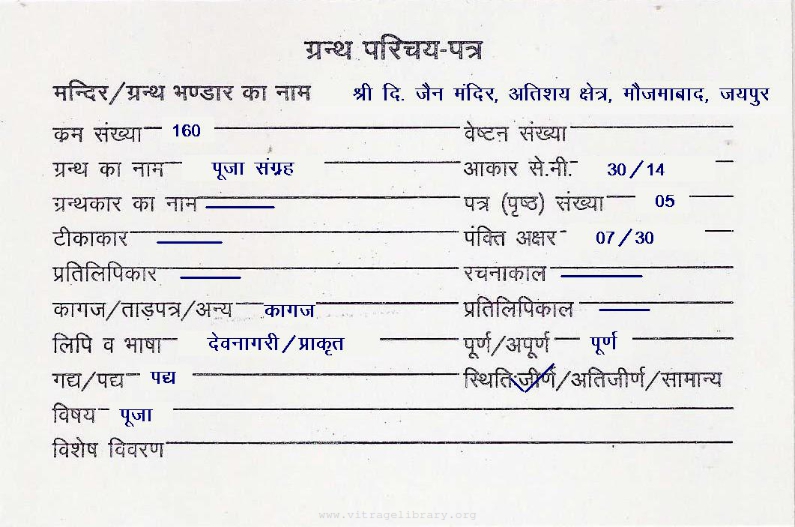 ग्रन्थ परिचय-पत्र
मन्दिर/ग्रन्थ भण्डार का नाम श्री दि. जैन मंदिर, अतिशय क्षेत्र, मौजमाबाद, जयपुर
क्रम संख्या 160 वेष्टन संख्या
ग्रन्थ का नाम पूजा संग्रह आकार से.नी. 30/14
ग्रन्थकार का नाम पत्र (पृष्ठ) संख्या 05
टीकाकार पंक्ति अक्षर 07/30
प्रतिलिपिकार रचनाकाल
कागज/ताड़पत्र/अन्य कागज प्रतिलिपिकाल
लिपि व भाषा देवनागरी/प्राकृत पूर्ण/अपूर्ण पूर्ण
गद्य/पद्य पद्य स्थिति:जीर्ण/अतिजीर्ण/सामान्य
विषय पूजा
विशेष विवरण
www.vitragelibrary.org